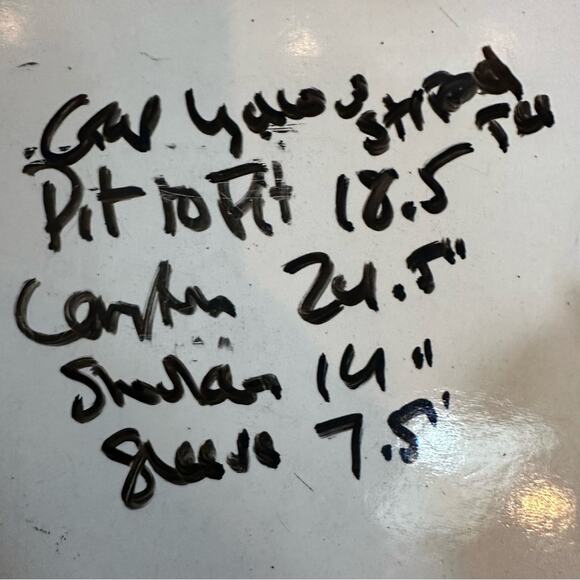 Gap Yellow Striped
Pit to Pit 18.5
Length 24.5"
Shoulder 14"
Sleeve 7.5"